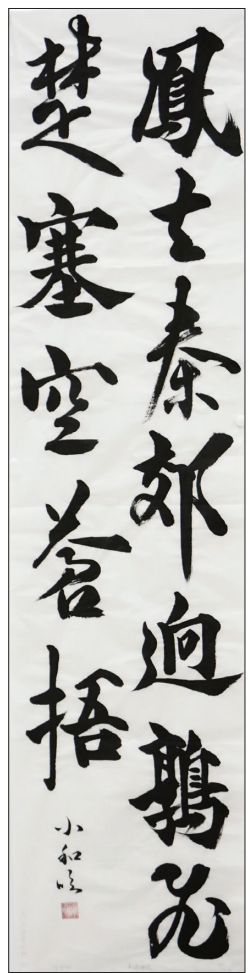 鳳去秦郊逈鶉飛
楚塞空蒼梧
小和